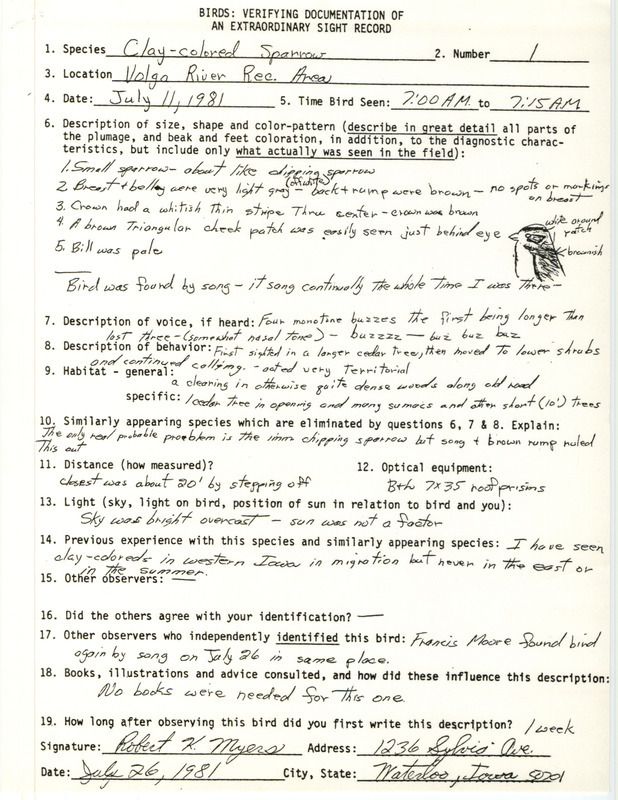 BIRDS: VERIFYING DOCUMENTATION OF
AN EXTRAORDINARY SIGHT RECORD
1. Species Clay-colored Sparrow 2. Number 1
3. Location Volga River Rec. Area
4. Date: July 11, 1981 5. Time Bird Seen: 7:00 AM to 7:15 AM
6. Description of size, shape and color-pattern (describe in great detail all parts of
the plumage, and beak and feet coloration, in addition, to the diagnostic charac-
teristics, but include only what actually was seen in the field):
1. Small sparrow - about like chipping sparrow
2. Breast + belley were very light gray (or white) - back + rump were brown - no spots or markings
on breast
3. Crown had a whitish thin stripe thru center - crown was brown
4. A brown triangular cheek patch was easily seen just behind eye
white around
patch
brownish
5. Bill was pale
Bird was found by song - it song continually the whole time I was there -
7. Description of voice, if heard: Four monotine buzzes the first being longer than
last three - (somewhat nasal tone) - buzzzz - buz buz buz
8. Description of behavior: First sighted in a larger cedar tree, then moved to lower shrubs
and continued calling. - acted very territorial
9. Habitat - general:
a clearing in otherwise quite dense woods along old road
specific: 1 cedar tree in opening and many sumacs and other short (10') trees
10. Similarly appearing species which are eliminated by questions 6, 7 & 8. Explain:
The only real probable proeblem is the imm chipping sparrow but song + brown rump ruled
this out
11. Distance (how measured)? 12. Optical equipment:
closest was about 20' by stepping off B+L 7x35 roof prisms
13. Light (sky, light on bird, position of sun in relation to bird and you):
Sky was bright overcast - sun was not a factor
14. Previous experience with this species and similarly appearing species: I have seen
clay-coloreds in western Iowa in migration but never in the east or
in the summer.
15. Other observers: —
16. Did the others agree with your identification? —
17. Other observers who independently identified this bird: Francis Moore found bird
again by song on July 26 in same place.
18. Books, illustrations and advice consulted, and how did these influence this description:
No books were needed for this one.
19. How long after observing this bird did you first write this description? 1 week
Signature: Robert K. Myers Address: 1236 Sylvia Ave.
Date: July 26, 1981 City, State: Waterloo, Iowa